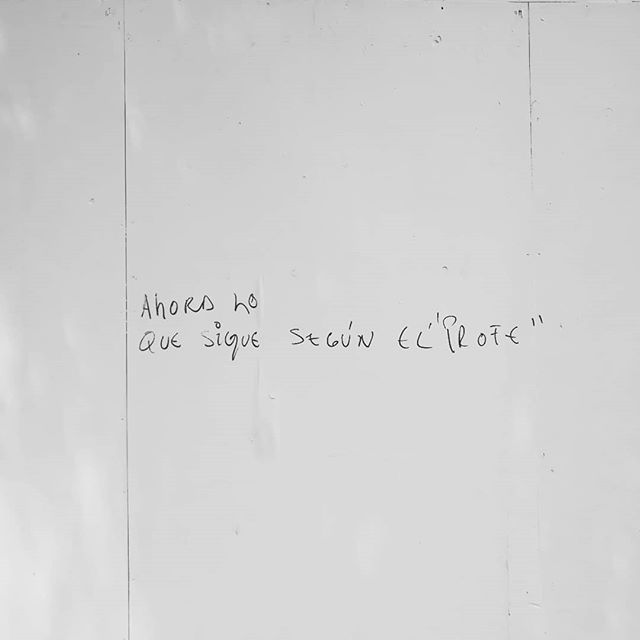 AHORA LO
QUE SIGUE SEGÚN EL "PROFE"